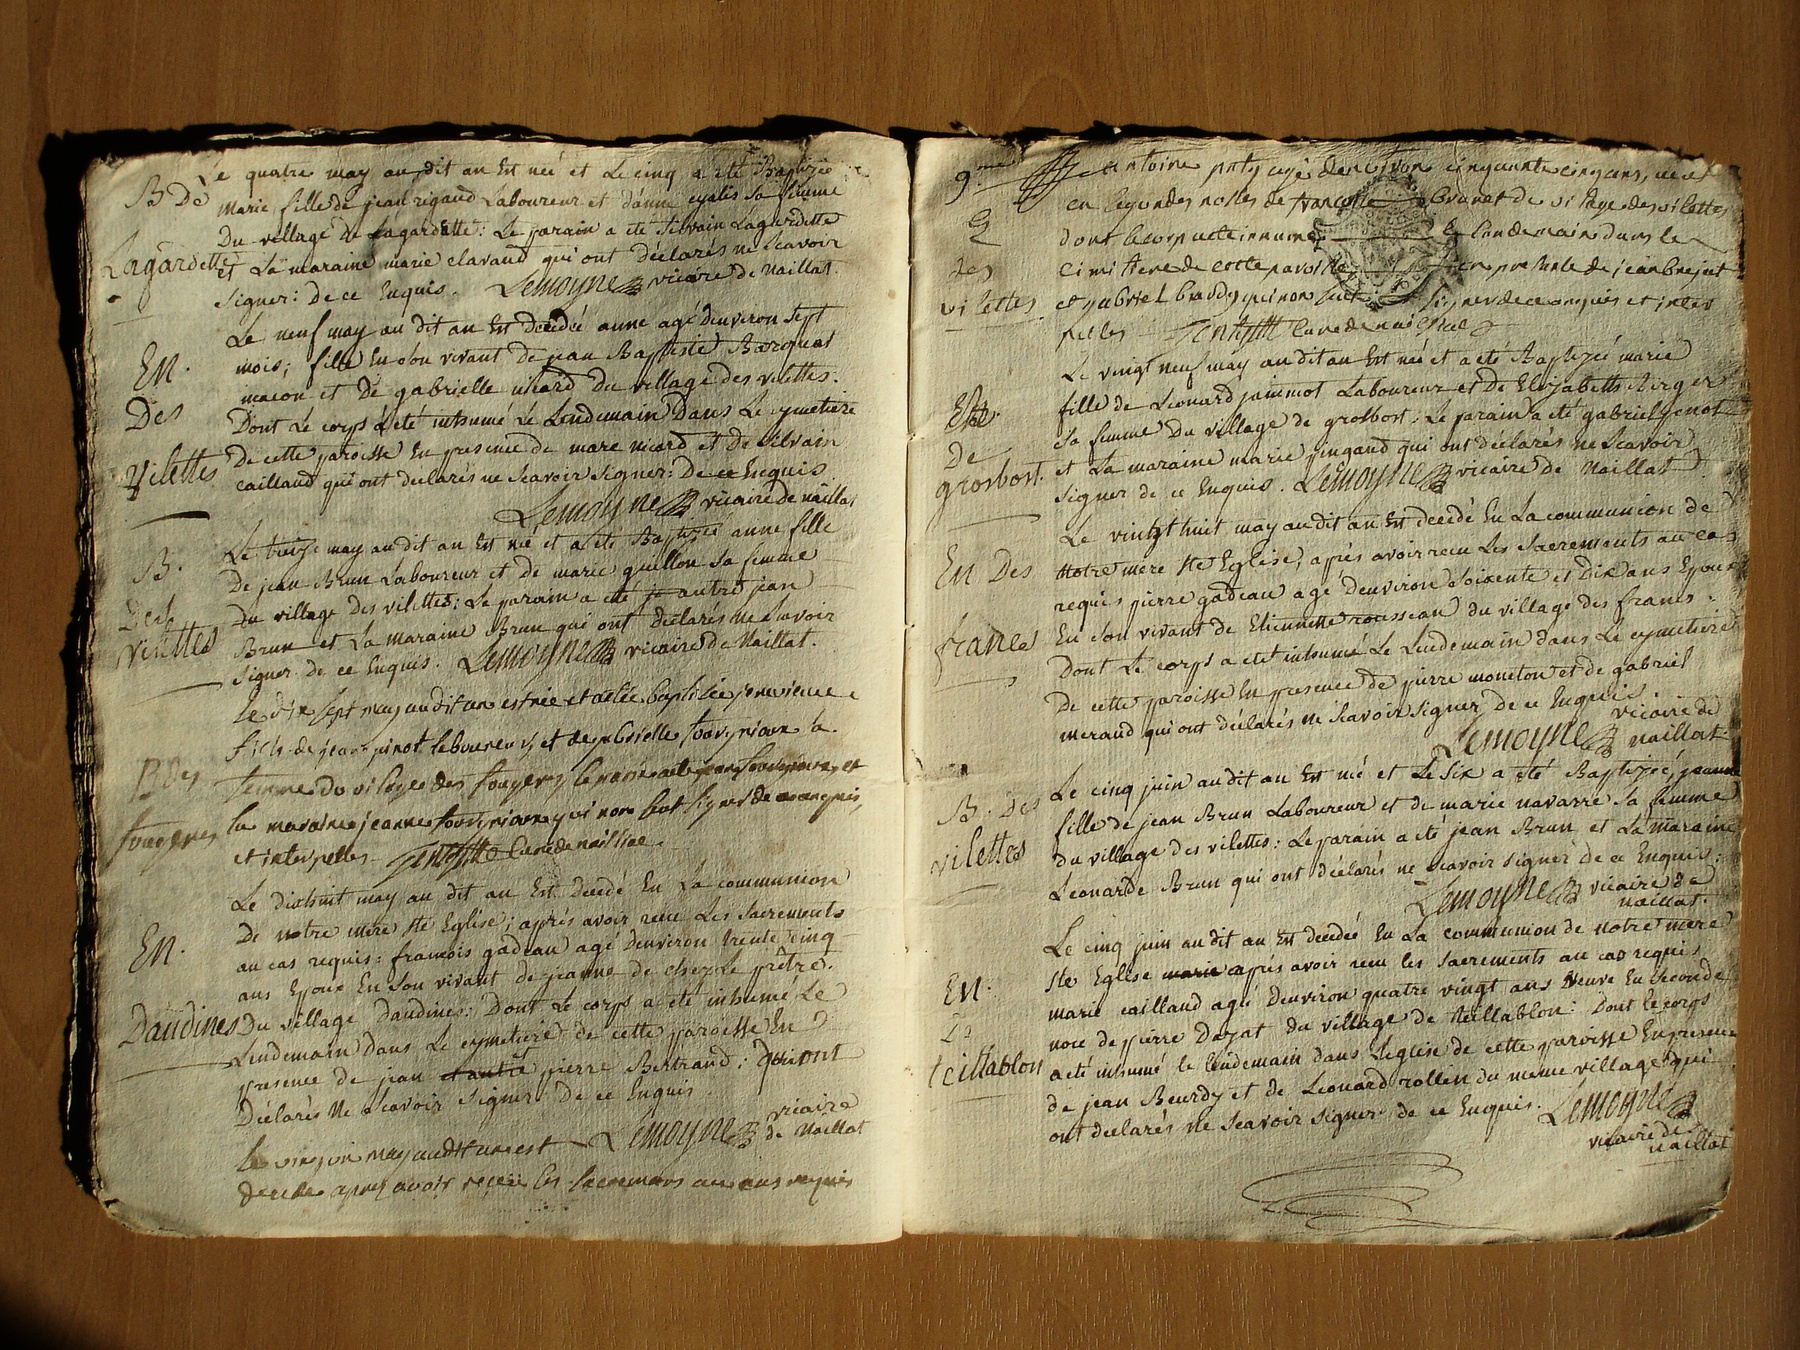 Le quatre may au dit an Est née et Le cinq a été Baptizée
B De
marie fille de jean rigaud Laboureur et d'anne eyalis sa femme
Du village de Lagardette: Le parain a été Silvain Lagardette
Lagardette
et La maraine marie clavaud qui ont déclarés ne Scavoir
Signer: de ce Enquis. Lemoyne vicaire de Naillat.
Le neuf may au dit an Est decédée anne agé denviron Sept
En.
mois; fille En son vivant de jean Baptiste Barquat
macon et De gabrielle micard du village des vilettes.
Des
Dont Le corps a été inhumé Le Lendemain Dans Le cymetiere
de cette paroisse En presence de marc micard et de silvain
vilettes
cailland qui ont declarés ne Scavoir Signer: De ce Enquis
Lemoyne vicaire de naillat
Le treize may au dit an Est né et a été Baptizée anne fille
B.
De jean Brun Laboureur et de marie guillon sa femme
Du village des vilettes: Le parain a été je autre jean
Des
Brun et La maraine Brun qui ont déclarés ne Scavoir
vilettes
Signer de ce Enquis. Lemoyne vicaire de Naillat.
le dix sept may au dit an est née et a été baptisée
fille de jean pinot laboureur, et de gabrielle sa
B Des
femme du vilage des fougeres le parain a été jean et
fougeres
la maraine jeanne qui non Scut signer de ce enquis,
et interpelles curé de naillac
Le dixhuit may au dit an Est Decedé En La communion
De notre mere Ste Eglise; aprés avoir recu Les Sacrements
En.
au cas requis: francois gadeau agé denviron trente cinq
ans Epoux En Son vivant de jeanne de chez Le prêtre.
Daudines
Du village Daudines: Dont Le corps a été inhumé Le
Lendemain dans Le cymetiere de cette paroisse En
presence de jean et autre pierre Bertrand; qui ont
Déclarés Ne Scavoir Signer: De ce Enquis.
Lemoyne vicaire de Naillat
le may audit an est
decede apres avoir receu les sacremans au cas requis
9.me
antoine agé denviron cinquante cinq ans,
en segondes noses de francoise Brunet du vilage des vilettes
E
dont le corp a eté innumé le landemain dans le
des
cimittere de cette paroisse en presense de jean brejut
vilettes
et gabriel qui non scut signer de ce enquis et inter
pelles curé de naillac
Le vingt neuf may au dit an Est né et a été Baptizée marie
fille de Leonard jammot Laboureur et de Elizabeth Auger
sa femme Du village de grosbost. Le parain a été gabriel genot
De
et La maraine marie pingaud qui ont déclarés ne Scavoir
grosbost.
Signer de ce Enquis. Lemoyne vicaire de Naillat
Le vintgt huit may au dit an Est decedé En La communion de
En Des
Notre mere Ste Eglise; aprés avoir recu Les Sacrements au cas
requis pierre gadeau agé denviron Soixente et Dix ans Epoux
francs
En Son vivant de Etiennette rousseau du village des francs:
Dont Le corps a etét inhumé Le Lendemain dans Le cymetiere
De cette paroisse En presence De pierre moneton et de gabriel
merand qui ont déclarés ne Scavoir Signer, de ce Enquis.
Lemoyne vicaire de naillat.
Le cinq juin au dit an Est né et Le Six a été Baptizée, jeanne
B. des
fille de jean Brun Laboureur et de marie navarre sa femme
vilettes
Du village des vilettes: Le parain a été jean Brun et La maraine
Leonarde Brun qui ont déclarés ne Scavoir Signer de ce Enquis:
Lemoyne vicaire de naillat.
Le cinq juin au dit an Est decedée En La communion de notre mere
Ste Eglise marie aprés avoir recu les Sacrements au cas requis
En.
marie cailland agé Denviron quatre vingt ans Veuve En Seconde
De
noce de pierre Dajat du village de Teillablon: Dont le corps
teillablon
a été inhumé le lendemain dans Leglise de cette paroisse En presence
de jean Beurdy et de Leonard rollin du même village qui
ont declarés ne Scavoir Signer: de ce Enquis. Lemoyne
vicaire de
naillat